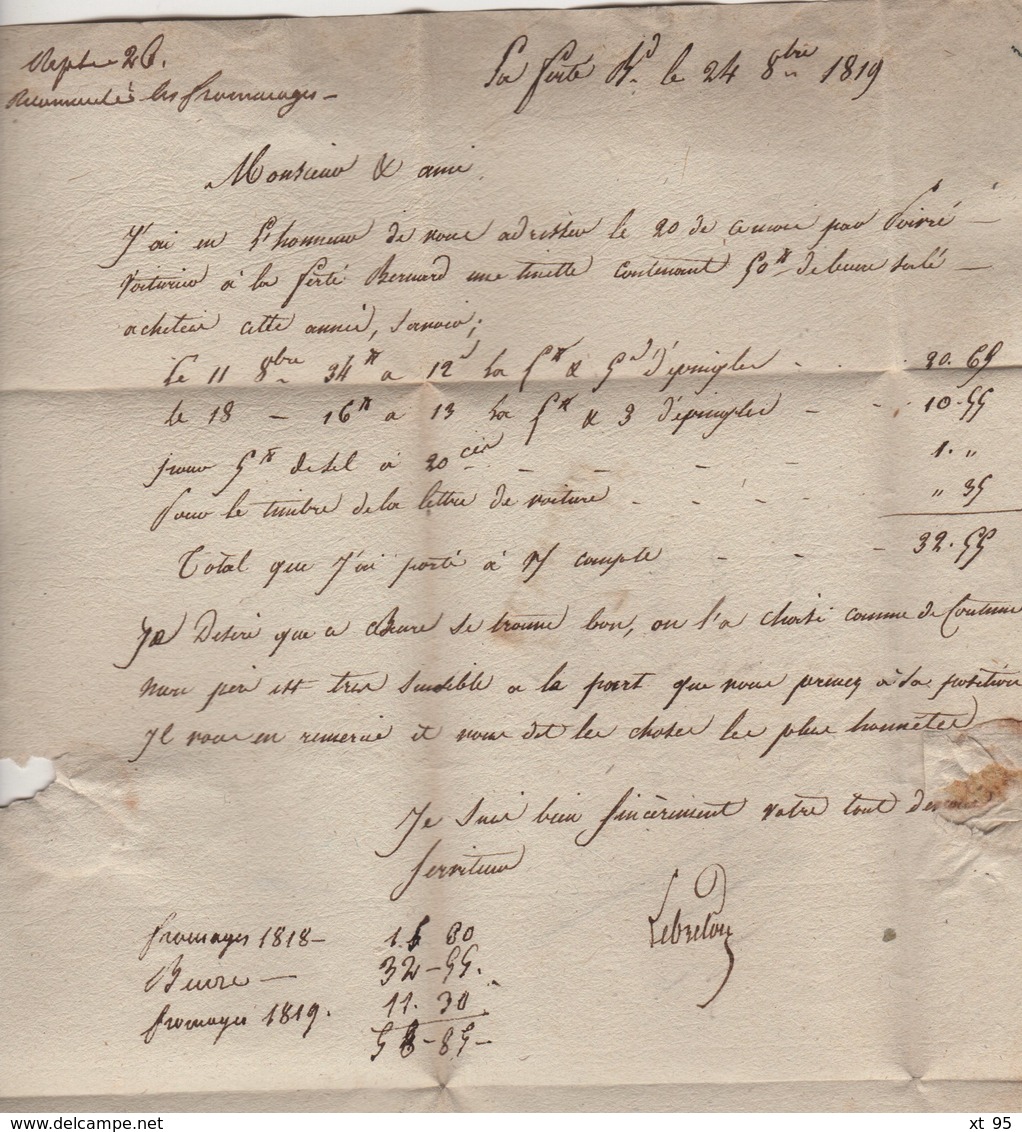 Repe 26.
Recommandé les fromages —
La ferté B.d le 24 8bre 1819
Monsieur & ami
J'ai eu l'honneur de vous adresser le 20 de ce mois par Poivré —
Voiturier à la ferté Bernard une tinette contenant 50 ₶ de beure salé —
acheteis cette anneé, savoir;
Le 11 8bre 34 ₶ a 12 s la £ ₶ & 5 d d'épingles - . 20. 65
le 18 — 16 ₶ a 13 la £ ₶ & 3 d'épingles - - 10. 55
pour 5 ₶ de sel à 20 ces - - - - 1. "
Pour le timbre de la lettre de voiture - - - - " 35
Total que J'ai porté à v/ compte - - - 32. 55
Je Desire que ce Beure se trouve bon, on l'a choisi comme de Coutume
mon pere est tres sensible a la part que vous prenez à sa position
Il vous en remercie et vous dit les choses les plus honnêtes
Je suis bien sincèrement votre tout devoué
serviteur
Lebreton
fromages 1818 — 15 00
Beure — 32 — 55.
fromages 1819. 11. 30
58 — 85 —
www.delcampe.net
xt_95